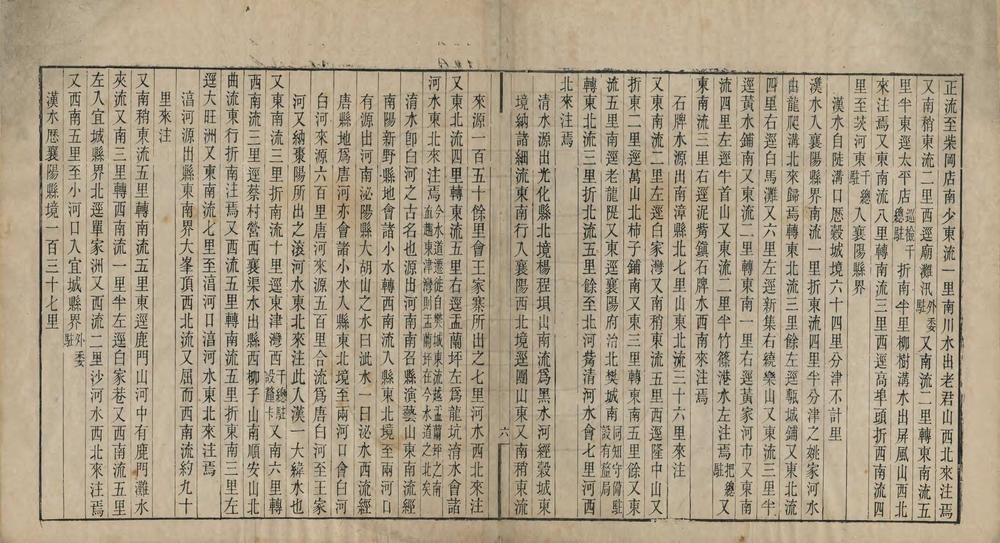 正流至柴岡店南少東流一里南川水出老君山西北來注焉
又南稍東流二里西逕廟灘汛外委駐又南流二里轉東南流五
里半東逕太平店巡檢千總駐折南半里柳樹溝水出屏風山西北
來注焉又東南流八里轉南流三里西逕高埠頭折西南流四
里至茨河東千總駐入襄陽縣界
漢水自陡溝口歷穀城境六十四里分津不計里
漢水入襄陽縣界南流一里折東流四里半分津之姚家河水
由龍爬溝北來歸焉轉東北流三里餘左逕甎城鋪又東北流
四里右逕白馬灘又六里左逕新集右繞樂山又東流三里半
逕黃水鋪南又東流二里轉東南一里右逕黃家河市又東南
流四里左逕牛首山又東流二里半竹篠港水左注焉把總駐又
東南流三里右逕泥觜鎮石牌水西南來注焉
石牌水源出南漳縣北七里山東北流三十六里來注
又東南流二里左逕白家灣又南稍東流五里西逕隆中山又
折東二里逕萬山北柿子鋪南又東三里轉東南五里餘又東
流五里南逕老龍隄又東逕襄陽府治北樊城南同知守備駐設有釐局
轉東北流三里折北流五里餘至北河觜清河水會七里河西
北來注焉
清水源出光化縣北境楊程垻山南流爲黑水河經穀城東
境納諸細流東南行入襄陽西北境逕團山東又南稍東流
來源一百五十餘里會王家寨所出之七里河水西北來注
又東北流四里轉東流五里右逕盂蘭坪左爲龍坑淯水會諸
河水東北來注焉今水道遷徙自樊城東流越盂蘭坪之南直趨東津灣則盂蘭坪在今水道之北矣
淯水卽白河之古名也源出河南南召縣演藝山東南流經
南陽新野縣地會諸小水轉西南流入縣東北境至兩河口
有源出河南泌陽縣大胡山之水曰泚水一曰泌水西流經
唐縣地爲唐河亦會諸小水入縣東北境至兩河口會白河
白河來源六百里唐河來源五百里合流爲唐白河至王家
河又納棗陽所出之滾河水東北來注此入漢一大緯水也
又東南流三里折南流十里逕東津灣西千總駐設釐卡又南六里轉
西南流三里逕蔡村營西襄渠水出縣西柳子山南順安山北
曲流東行折南注焉又西流五里轉南流五里折東南三里左
逕大旺洲又東南流七里至湻河口湻河水東北來注焉
湻河源出縣東南界大峯頂西北流又屈而西南流約九十
里來注
又南稍東流五里轉南流五里東逕鹿門山河中有鹿門灘水
夾流又南三里轉西南流一里半左逕白家巷又西南流五里
左入宜城縣界北逕單家洲又西流二里沙河水西北來注焉
又西南五里至小河口入宜城縣界外委駐
漢水歷襄陽縣境一百三十七里
六